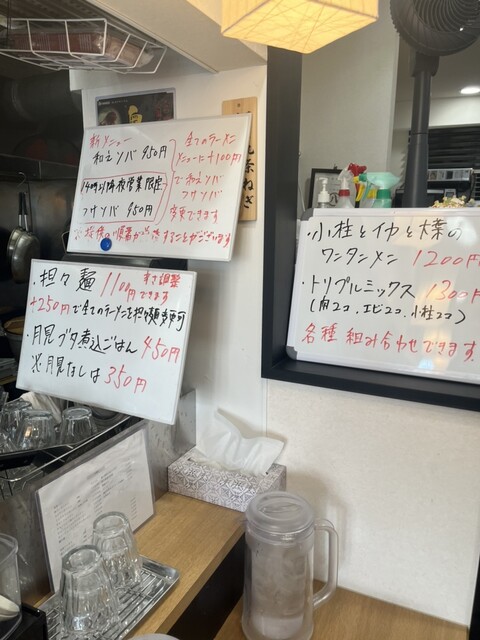 新メニュー
和えソバ 950円
14時以降夜営業限定
つけソバ 950円
全てのラーメン
メニューに+100円
で和えソバ
つけソバ
変更できます
ねぎ
・担々麺 1100円
辛さ調整
できます
+250円で全てのラーメンを担々麺変更可
・月見ブタ煮込ごはん 450円
※月見なしは350円
・小柱とイカと大葉の
ワンタンメン 1200円
・トリプルミックス 1300円
(肉2コ、エビ2コ、小柱2コ)
各種組み合わせできます